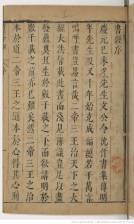 書經序
慶元己未冬先生文公令沈作書集傳明
年先生歿又十年始克成編總若干萬言
嗚呼書豈易言哉二帝三王治天下之大
經大法皆載此書而淺見薄識豈足以盡
發蘊奧且生於數千載之下而欲講明於
數千載之前亦已難矣然二帝三王之治
本於道二帝三王之道本於心得其心則